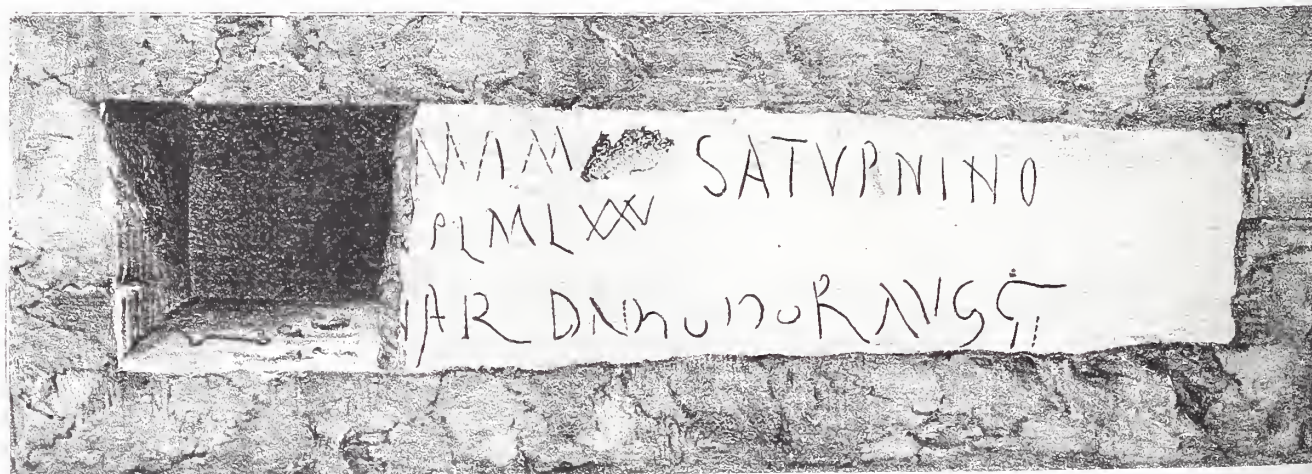 MAM SATVRNINO
PLMLXXV
AR DNNONORAVGG